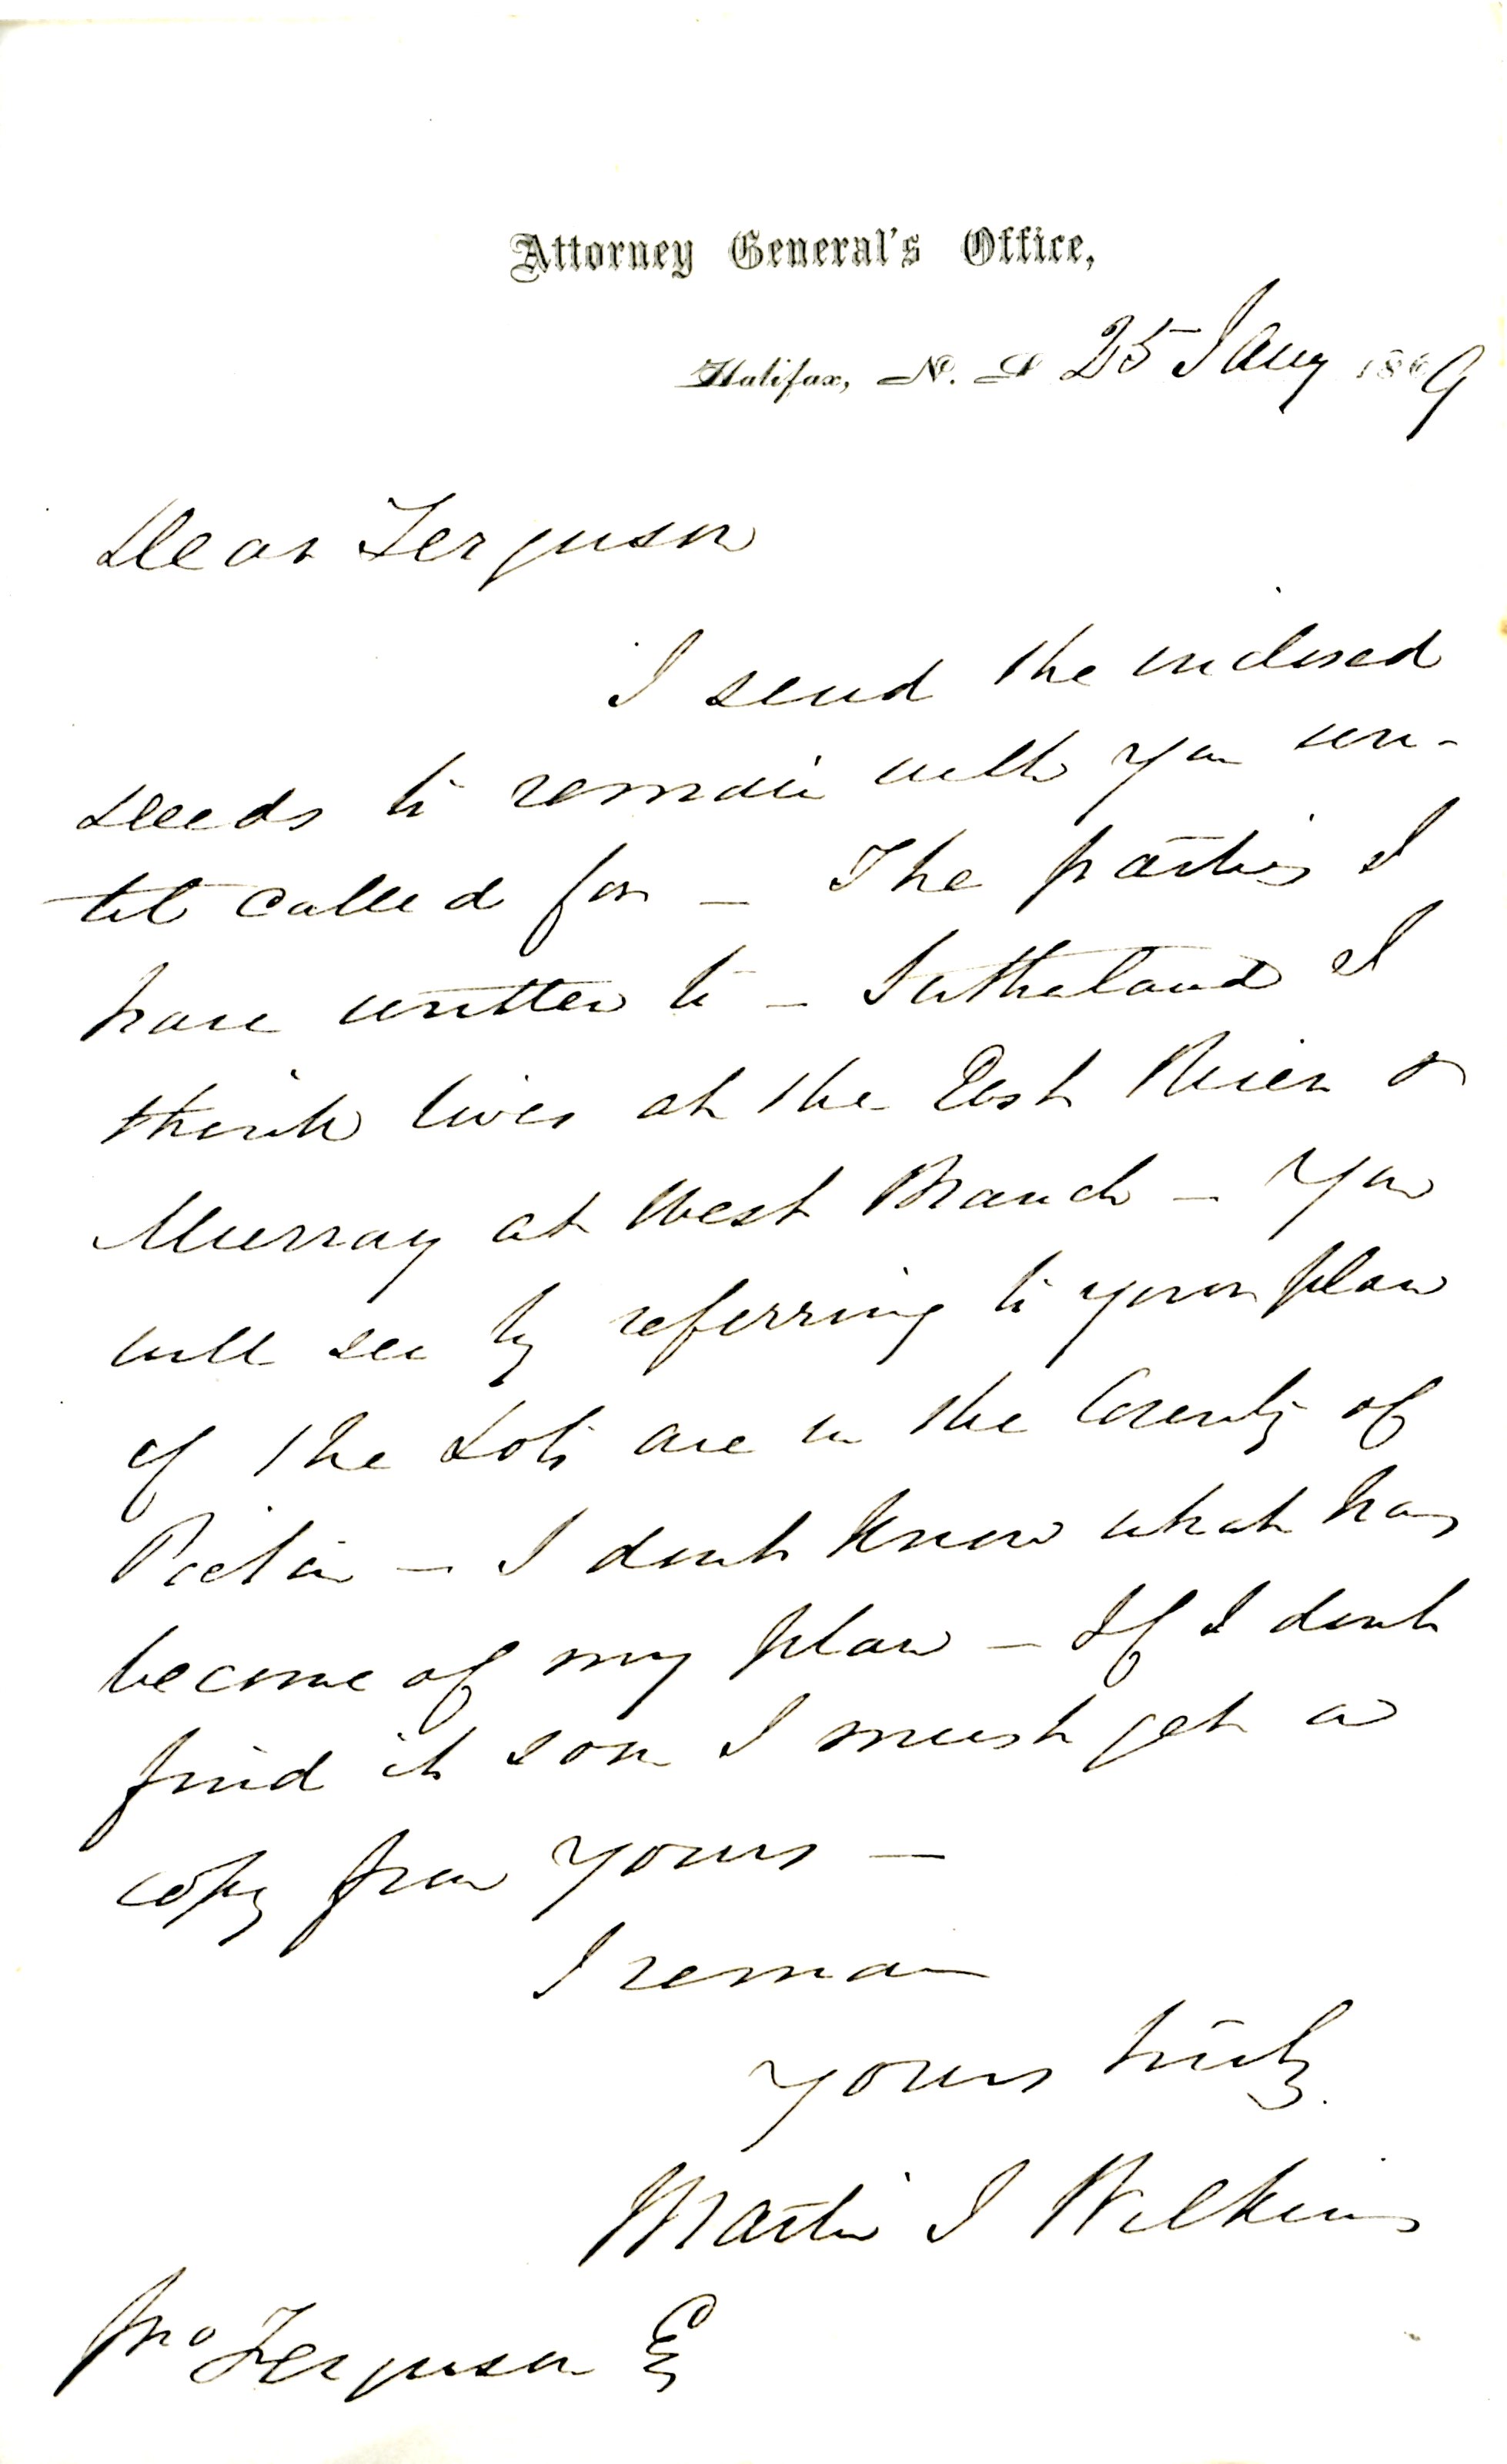 Attorney General's Office,
Halifax, N. S 25 Jany 1869
Dear Ferguson
I send the inclosed
Deeds to remain with you un-
til called for _ The parties I
have written to _ Sutherland I
think lives at the East River &
Murray at West Branch _ You
will see by referring to your plan
of the Lots are in the County of
Pictou _ I dont know what has
become of my plan _ If I dont
find it soon I must get a
copy from yours _
I remain
Yours truly
Martin I Wilkins
Jno Ferguson Eq